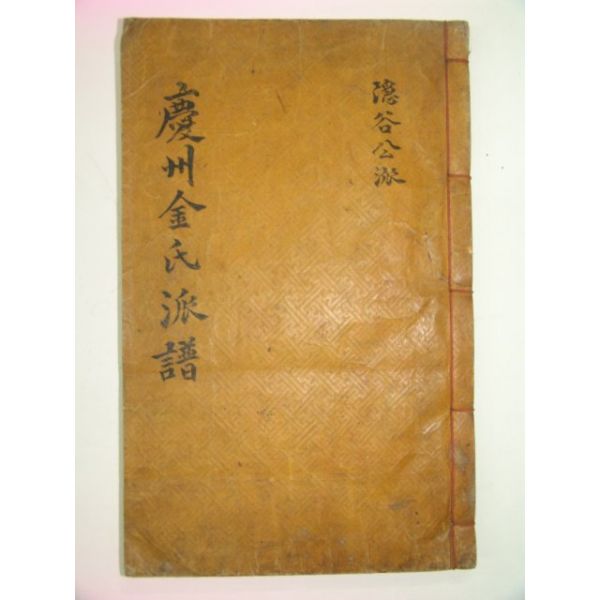 隱谷公派
慶州金氏派譜